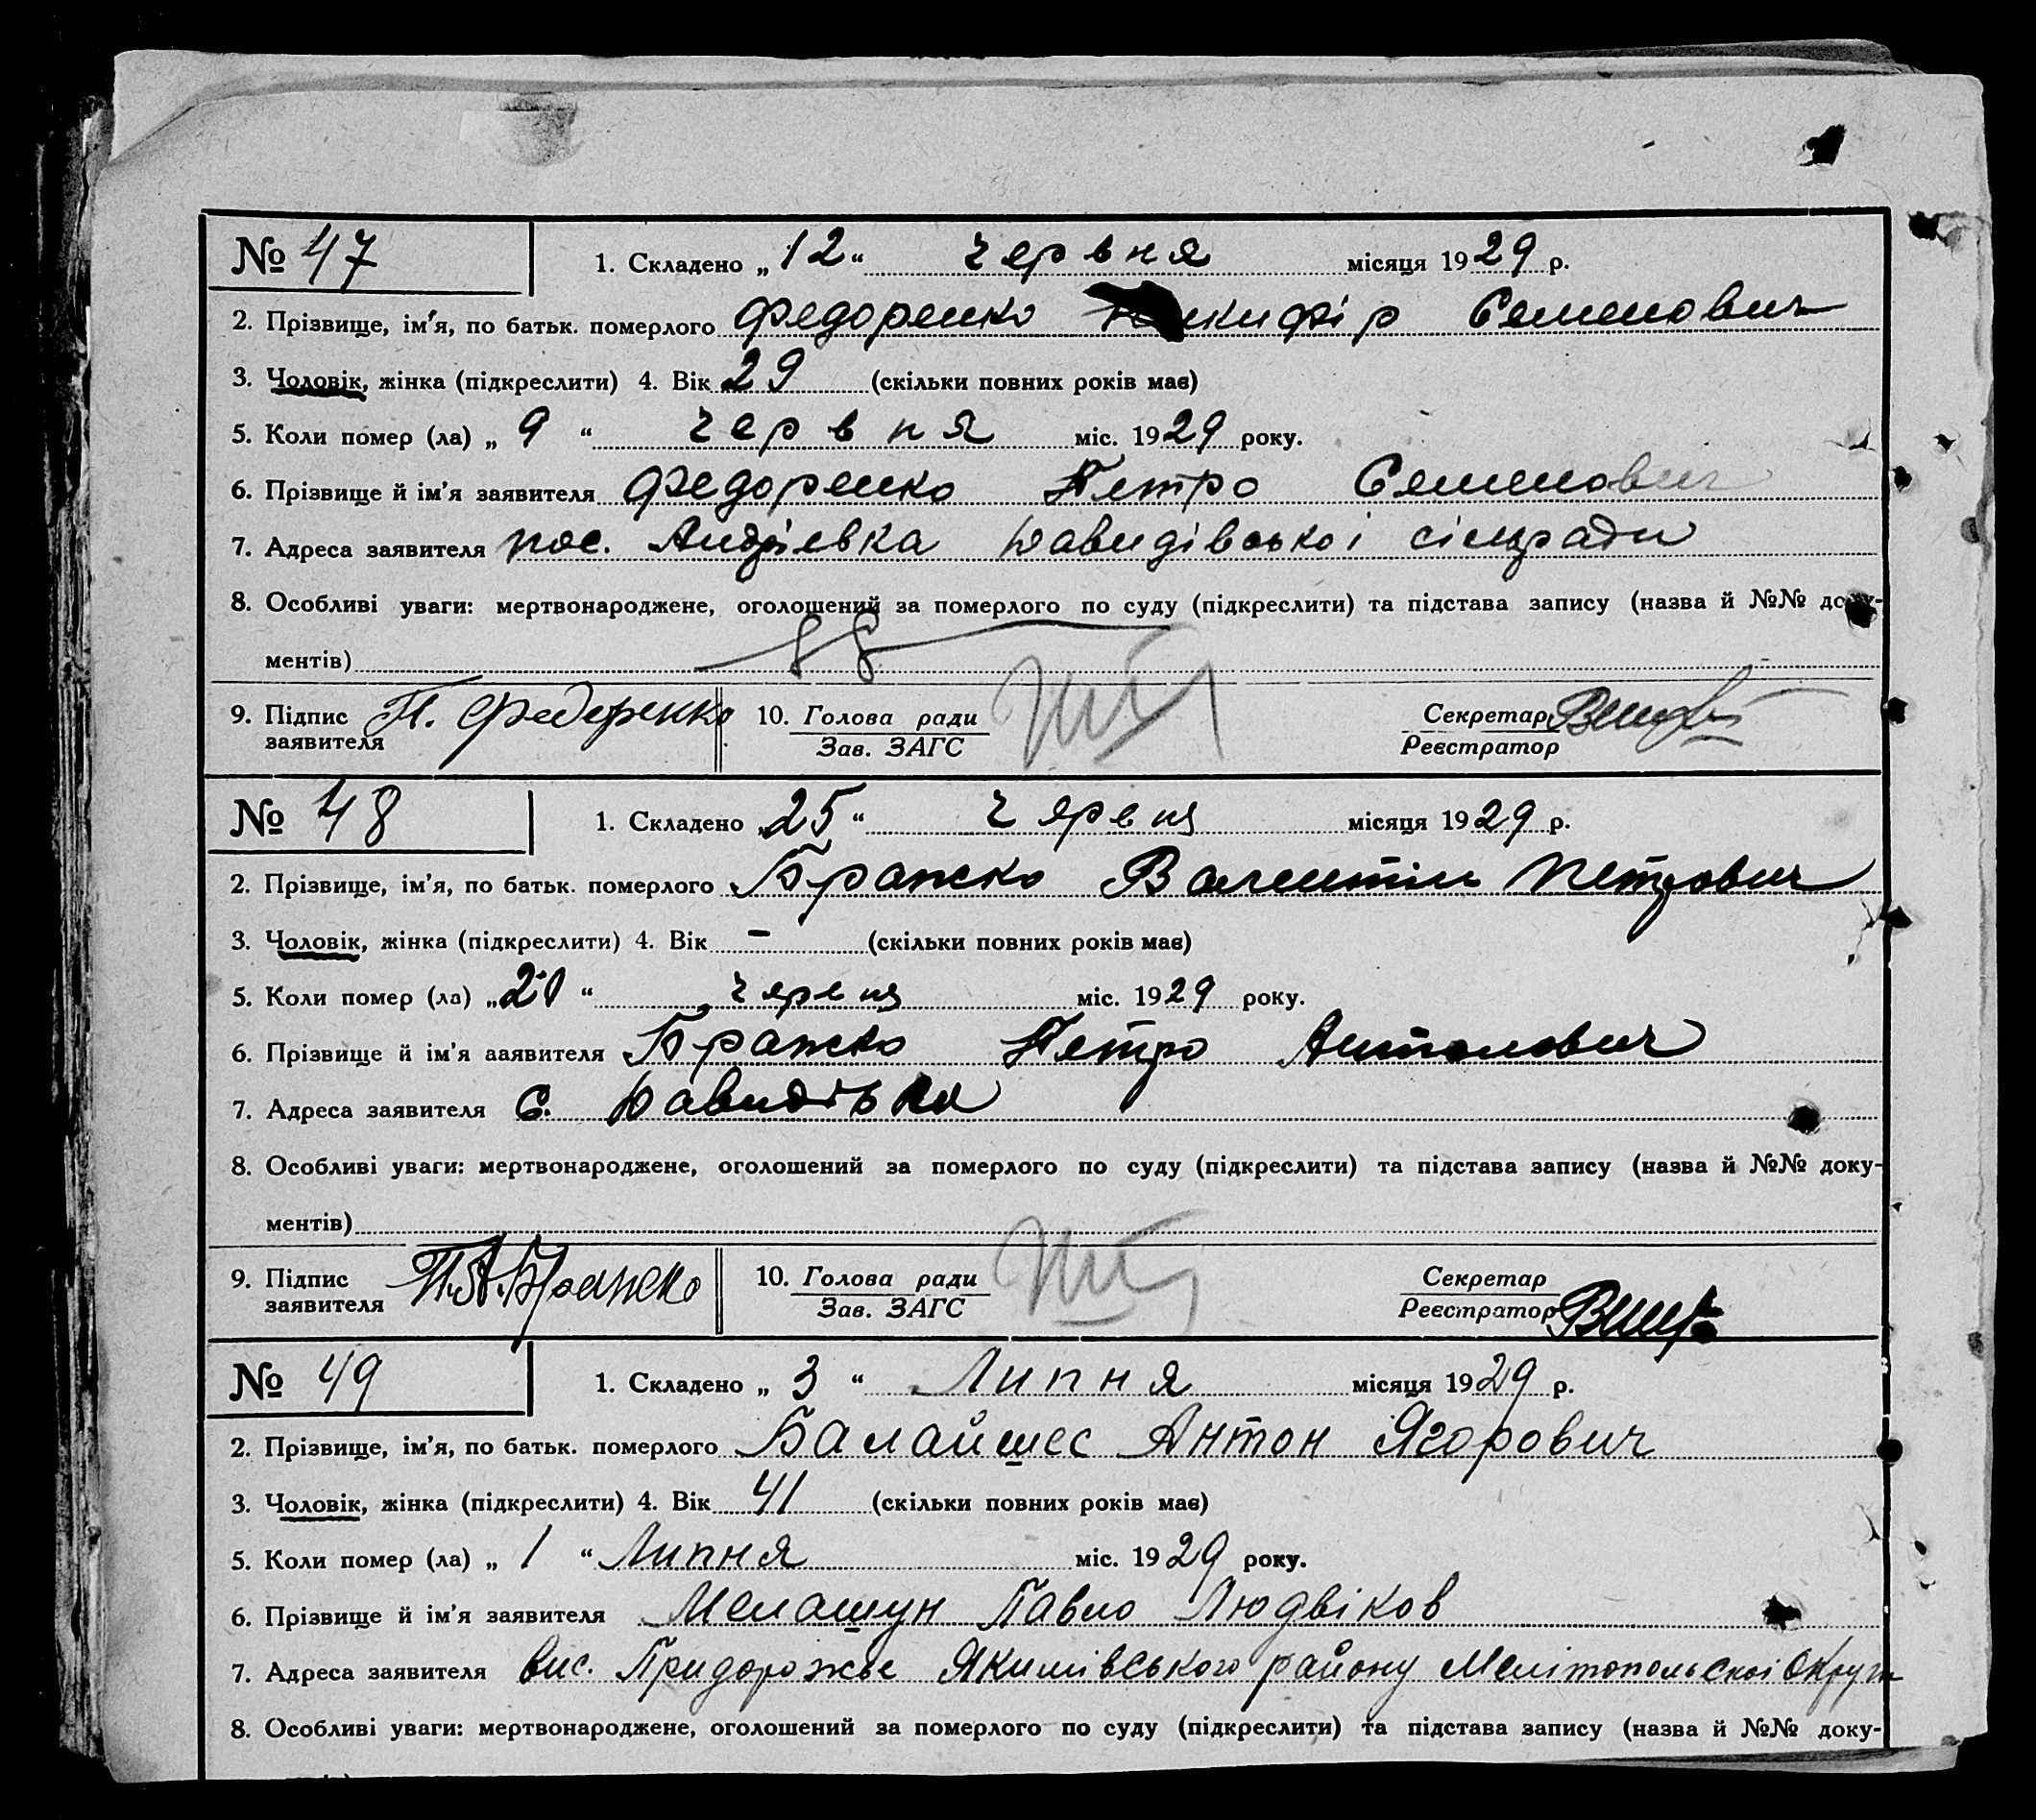 № 47 1. Складено „ 12 “ червня місяця 1929 р.
2. Прізвище, ім'я, по батьк. померлого Федоренко Никифір Семенович
3. Чоловік, жінка (підкреслити) 4. Вік 29 (скільки повних років має)
5. Коли помер (ла) „ 9 “ червня міс. 1929 року.
6. Прізвище й ім'я заявителя Федоренко Петро Семенович
7. Адреса заявителя пос. Андрієвка Давидівської сільради
8. Особливі уваги: мертвонароджене, оголошений за померлого по суду (підкреслити) та підстава запису (назва й №№ доку-
ментів)
9. Підпис заявителя П. Федеренко 10. Голова ради Зав. ЗАГС Секретар Реєстратор
№ 48 1. Складено „ 25 “ червня місяця 1929 р.
2. Прізвище, ім'я, по батьк. померлого Бражко Валентін Петрович
3. Чоловік, жінка (підкреслити) 4. Вік - (скільки повних років має)
5. Коли помер (ла) „ “ червня міс. 1929 року.
6. Прізвище й ім'я ааявителя Бражко Петро Антонович
7. Адреса заявителя с. Давидівка
8. Особливі уваги: мертвонароджене, оголошений за померлого по суду (підкреслити) та підстава запису (назва й №№ доку-
ментів)
9. Підпис заявителя П.А.Бражко 10. Голова ради Зав. ЗАГС Секретар Реєстратор
№ 49 1. Складено „ 3 “ Липня місяця 1929 р.
2. Прізвище, ім'я, по батьк. померлого Балайшес Антон Ягорович
3. Чоловік, жінка (підкреслити) 4. Вік 41 (скільки повних років має)
5. Коли помер (ла) „ 1 “ Липня міс. 1929 року.
6. Прізвище й ім'я заявителя Мелашун Павло Людвіков
7. Адреса заявителя вис. Придорожье Якимівського району Мелітопольскоі Округи
8. Особливі уваги: мертвонароджене, оголошений за померлого по суду (підкреслити) та підстава запису (назва й №№ доку-